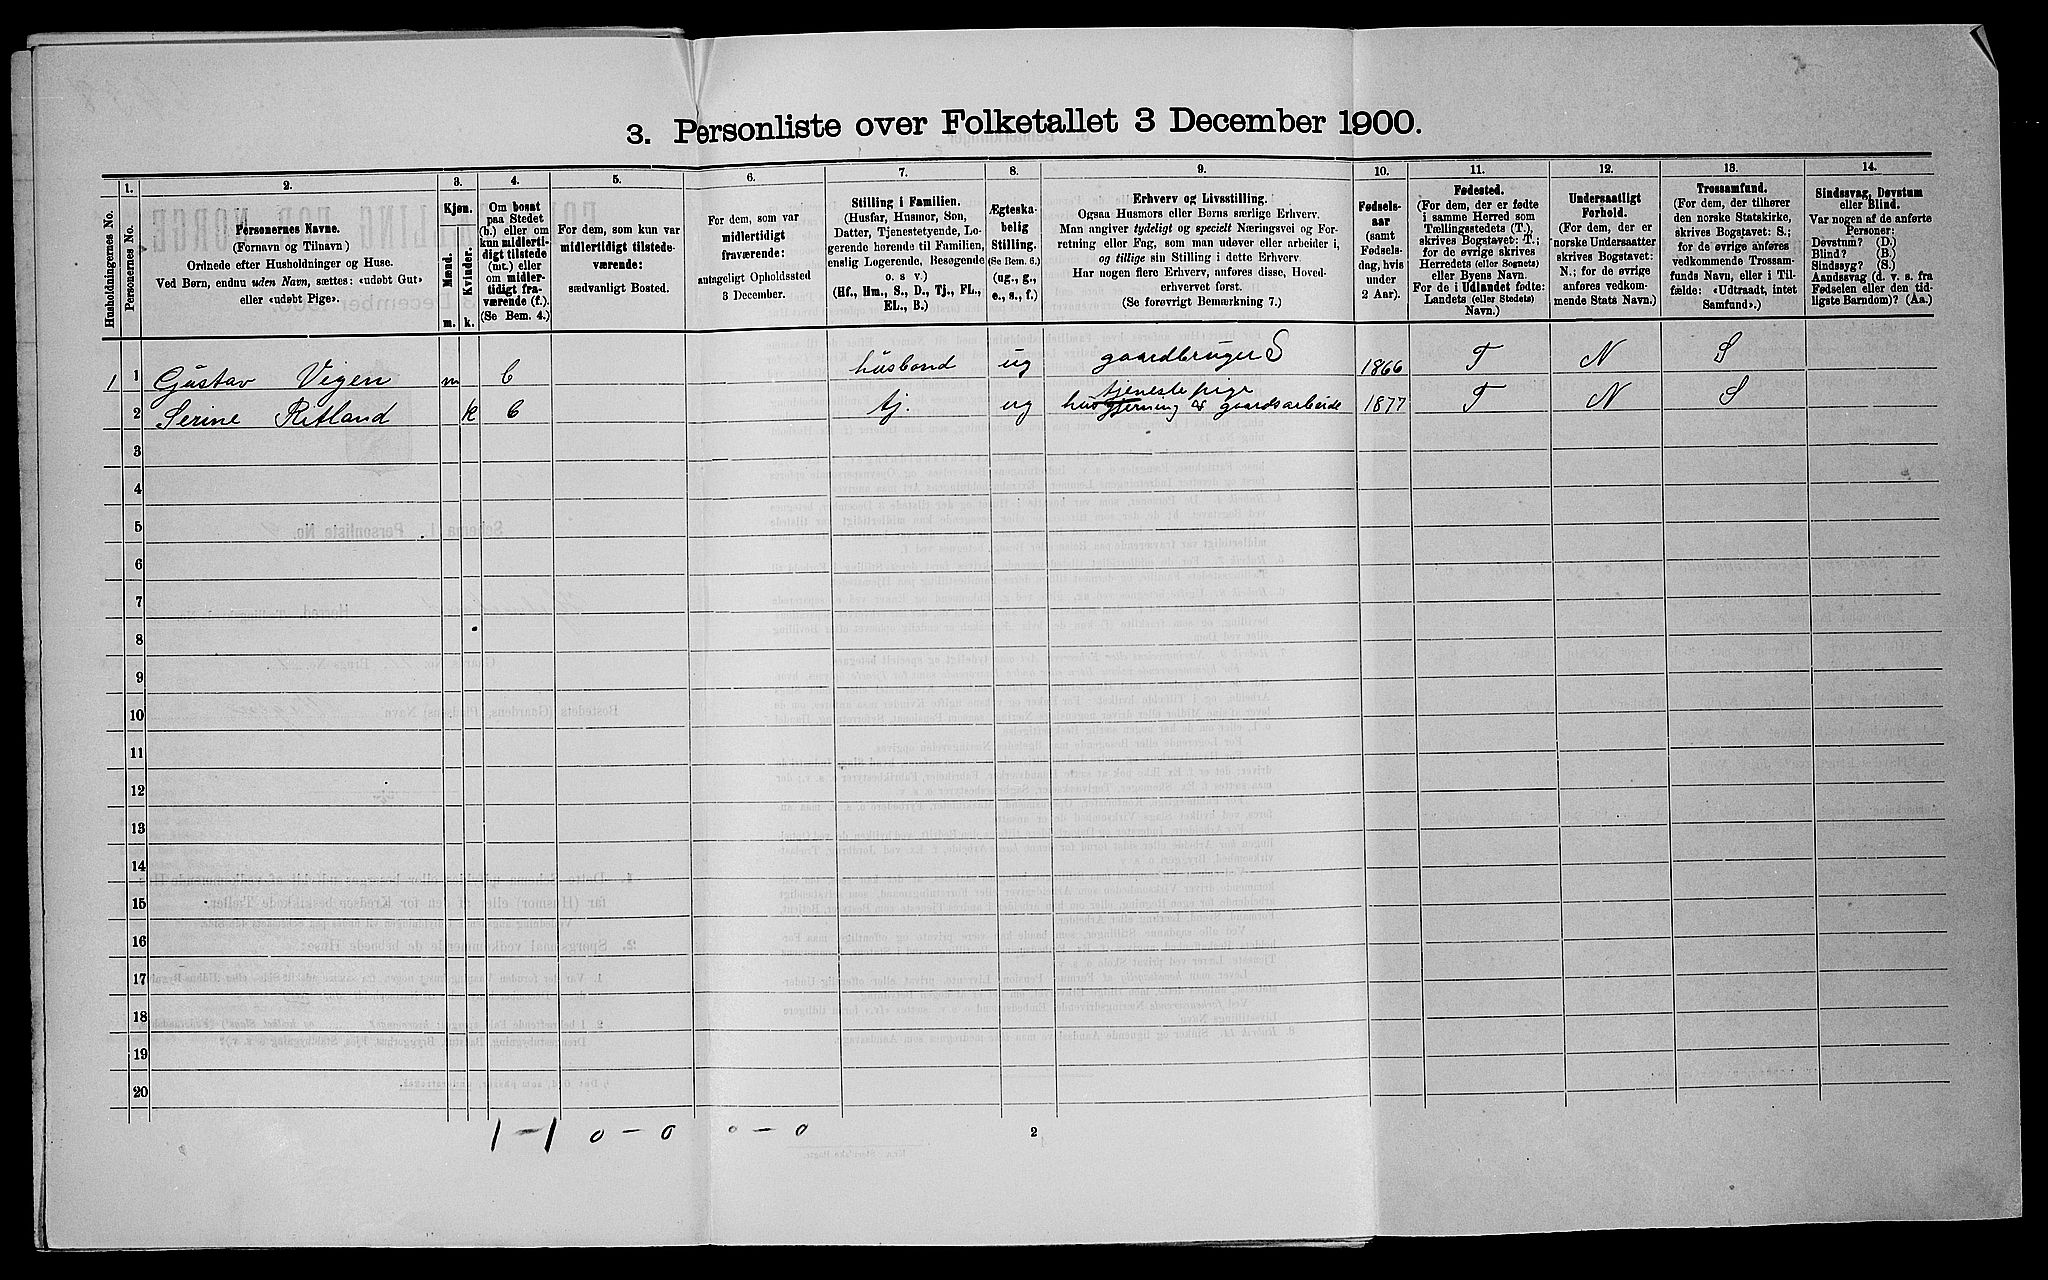 3. Personliste over Folketallet 3 December 1900.
Husholdningernes No.
1.
Personernes No.
2.
Personernes Navne.
(Fornavn og Tilnavn)
Ordnede efter Husholdninger og Huse.
Ved Børn, endnu uden Navn, sættes: «udøbt Gut»
eller «udøbt Pige».
3.
Kjøn.
Mænd.
Kvinder.
m. k.
4.
Om bosat
paa Stedet
(b.) eller om
kun midlerti-
digt tilstede
(mt.) eller
om midler-
tidigt fra-
værende (f.).
(Se Bem. 4.)
5.
For dem, som kun var
midlertidigt tilstede-
værende:
sædvanligt Bosted.
6.
For dem, som var
midlertidigt
fraværende:
antageligt Opholdssted
3 December.
7.
Stilling i Familien.
(Husfar, Husmor, Søn,
Datter, Tjenestetyende, Lo-
gerende hørende til Familien,
enslig Logerende, Besøgende
o. s v.)
(Hf., Hm., S., D., Tj., FL.,
EL., B.)
8.
Ægteska-
belig
Stilling.
(Se Bem. 6.)
(ug., g.,
e., s., f.)
9.
Erhverv og Livsstilling.
Ogsaa Husmors eller Børns særlige Erhverv.
Man angiver tydeligt og specielt Næringsvei og For-
retning eller Fag, som man udøver eller arbeider i,
og tillige sin Stilling i dette Erhverv.
Har nogen flere Erhverv, anføres disse, Hoved-
erhvervet først.
(Se forøvrigt Bemærkning 7.)
10.
Fødsels-
aar
(samt
Fødsels-
dag, hvis
under
2 Aar).
11.
Fødested.
(For dem, der er fødte
i samme Herred som
Tællingsstedets (T.),
skrives Bogstavet: T.;
for de øvrige skrives
Herredets (eller Sognets)
eller Byens Navn.
For de i Udlandet fødte:
Landets (eller Stedets)
Navn.)
12.
Undersaatligt
Forhold.
(For dem, der er
norske Undersaatter
skrives Bogstavet:
N.; for de øvrige
anføres vedkom-
mende Stats Navn.)
13.
Trossamfund.
(For dem, der tilhører
den norske Statskirke,
skrives Bogstavet: S.;
for de øvrige anføres
vedkommende Trossam-
funds Navn, eller i Til-
fælde: «Udtraadt, intet
Samfund».)
14.
Sindssvag, Døvstum
eller Blind.
Var nogen af de anførte
Personer:
Døvstum? (D.)
Blind? (B.)
Sindssyg? (S.)
Aandssvag (d. v. s. fra
Fødselen eller den tid-
ligste Barndom)? (Aa.)
1 1 Gustav Vigen m b husbond ug gaardbruger S 1866 T N S
tjenestepige
2 Serine Ritland k b tj. ug husgjerning & gaardsarbeide 1877 T N S
3
4
5
6
7
8
9
10
11
12
13
14
15
16
17
18
19
20
1-1 0-0 0-0
2